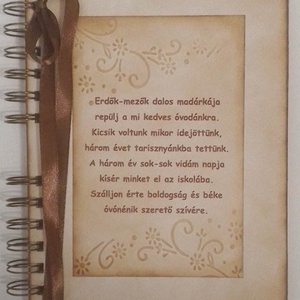 Erdők-mezők dalos madárkája
repülj a mi kedves óvodánkra.
Kicsik voltunk mikor idejöttünk,
három évet tarisznyánkba tettünk.
A három év sok-sok vidám napja
kísér minket el az iskolába.
Szálljon érte boldogság és béke
óvónénik szerető szívére.